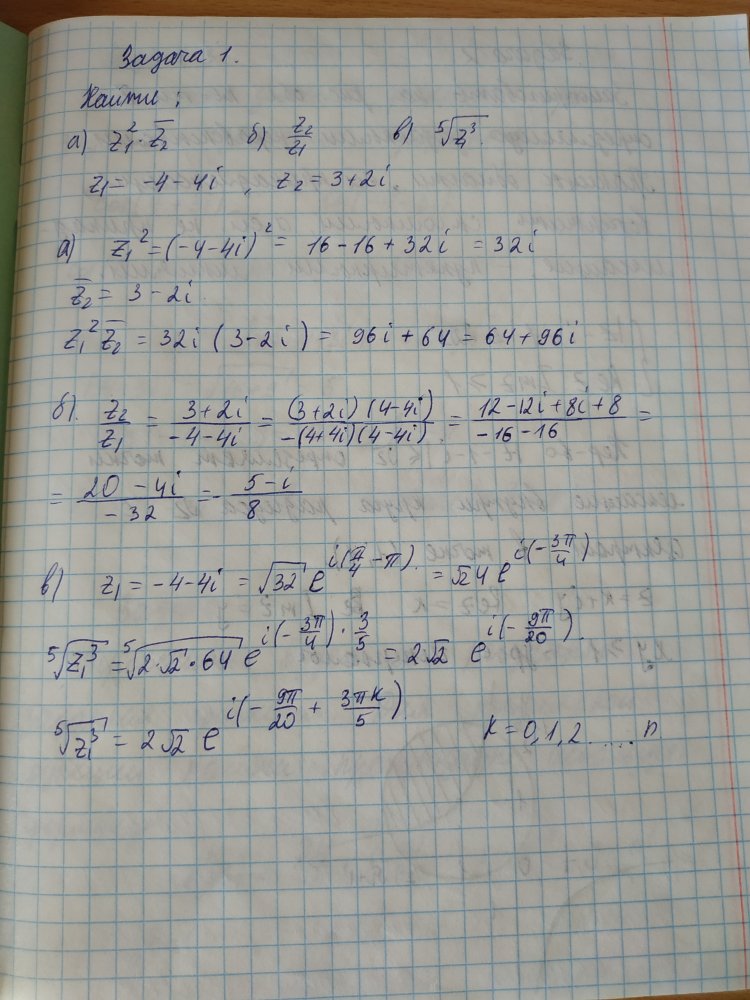 Задача 1.
Найти:
а) z₁²·z̅₂ б) z₂/z₁ в) ⁵√(z₁³).
z₁ = -4-4i, z₂ = 3+2i.
а) z₁² = (-4-4i)² = 16-16+32i = 32i
z̅₂ = 3-2i.
z₁² z̅₂ = 32i (3-2i) = 96i+64 = 64+96i
б). z₂/z₁ = (3+2i)/(-4-4i) = ((3+2i)(4-4i))/(-(4+4i)(4-4i)) = (12-12i+8i+8)/(-16-16) =
= (20-4i)/(-32) = -(5-i)/8
в) z₁ = -4-4i = √32 e^(i(π/4-π)). = √2 4 e^(i(-3π/4))
⁵√(z₁³) = ⁵√(2·√2·64) e^(i(-3π/4)·3/5) = 2√2 e^(i(-9π/20)).
⁵√(z₁³) = 2√2 e^(i(-9π/20 + 3πk/5)) k=0,1,2.....n